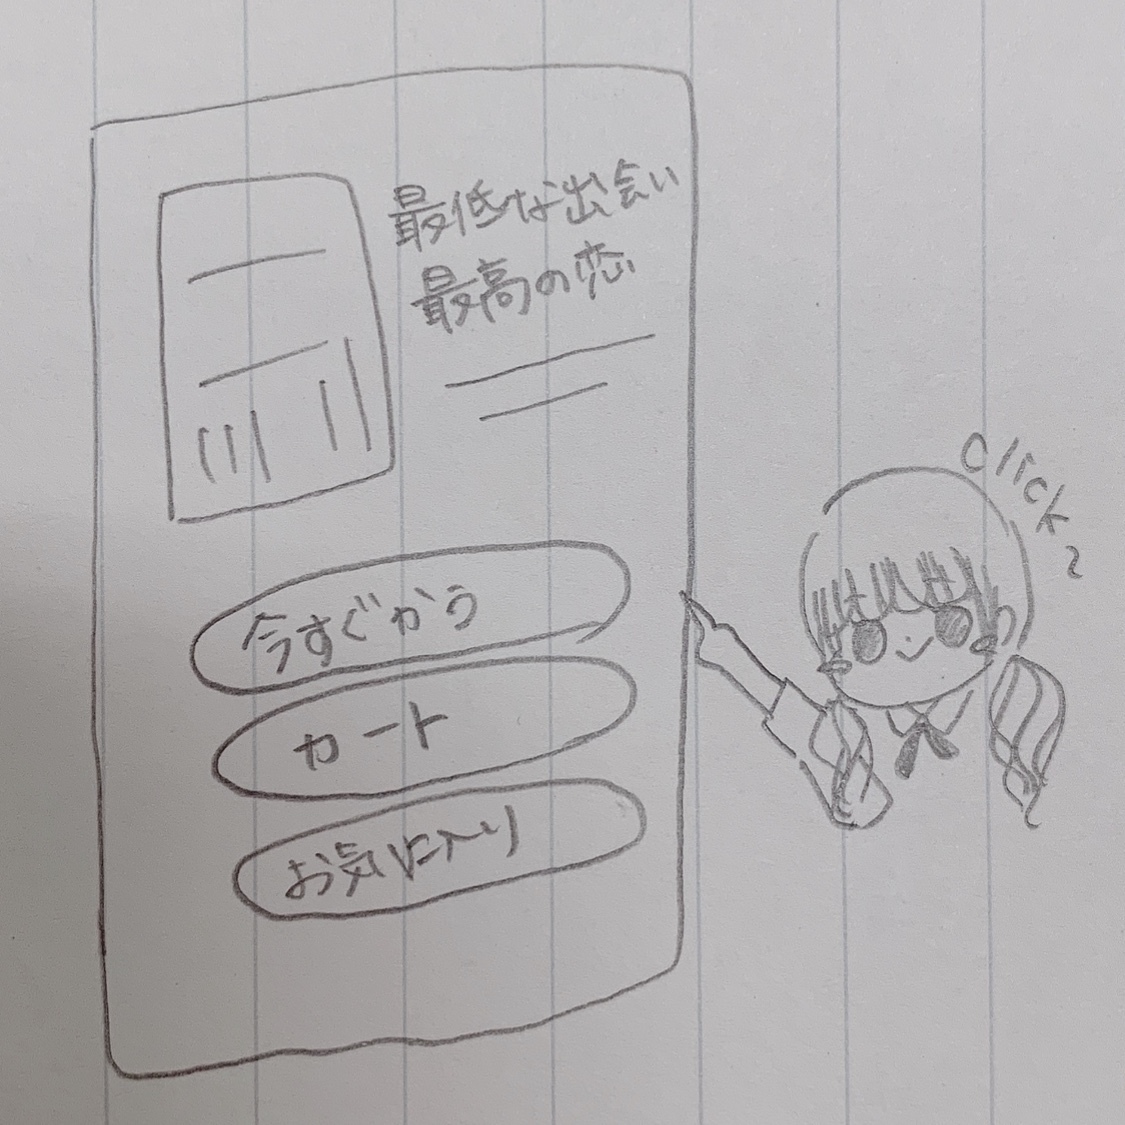 最低な出会い
最高の恋
今すぐかう
カート
お気に入り
Click